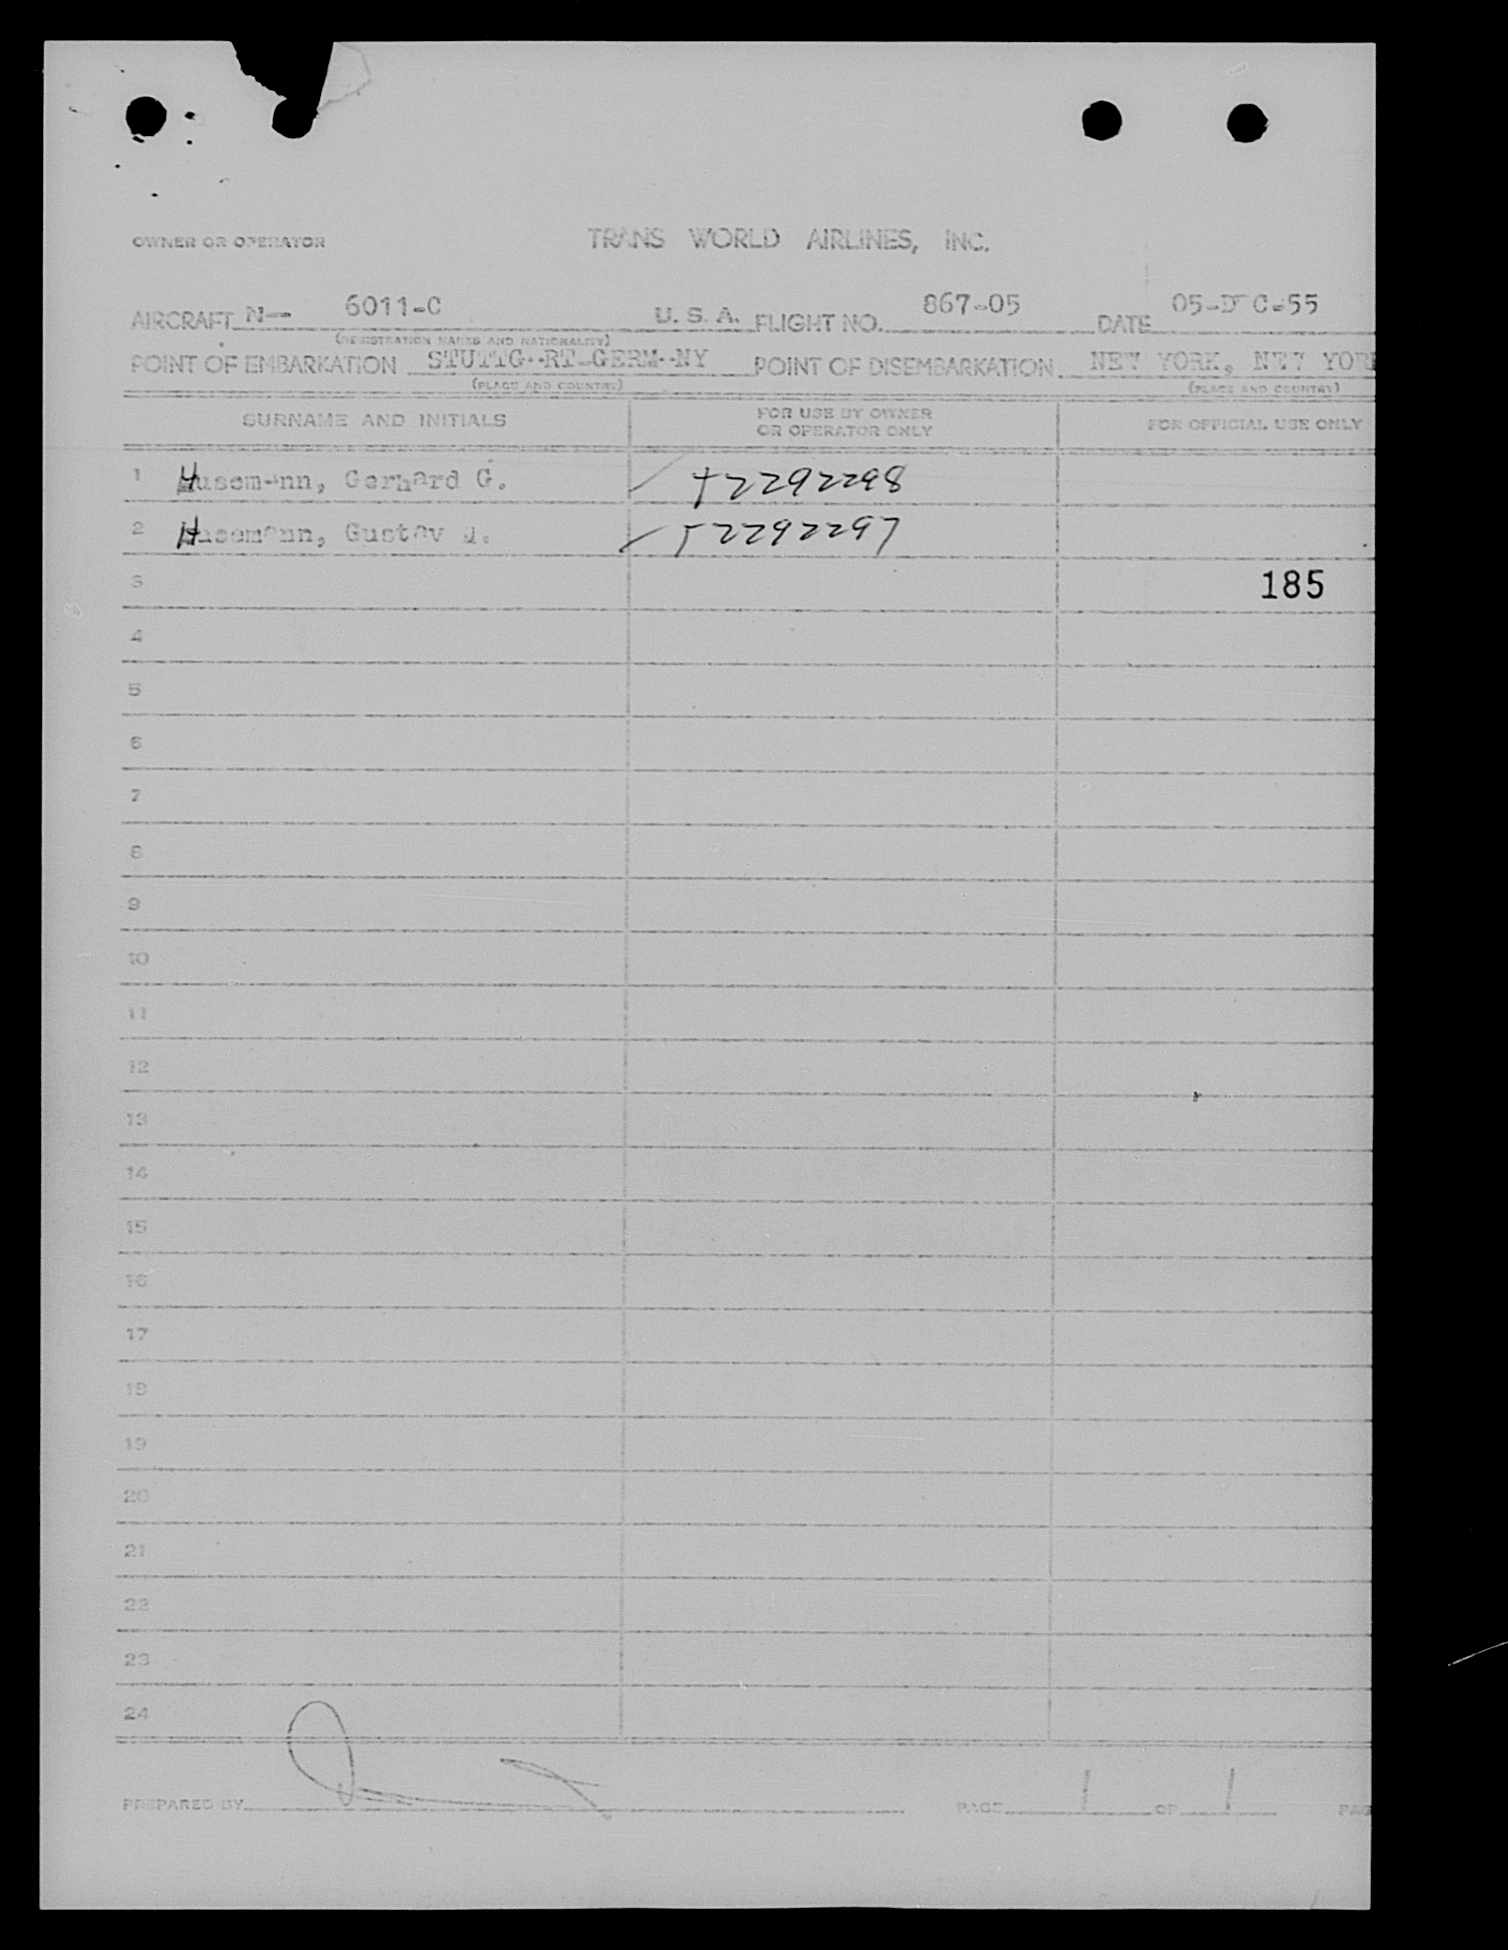 OWNER OR OPERATOR TRANS WORLD AIRLINES, INC.
AIRCRAFT N— 6011-C U. S. A. FLIGHT NO. 867-05 DATE 05-D C-55
(REGISTRATION MARKS AND NATIONALITY)
POINT OF EMBARKATION STUTTG RT-GERM NY POINT OF DISEMBARKATION NEW YORK, NEW YORK
(PLACE AND COUNTRY) (PLACE AND COUNTRY)
SURNAME AND INITIALS FOR USE BY OWNER OR OPERATOR ONLY FOR OFFICIAL USE ONLY
1 Husemann, Gerhard G. 
2 Husemann, Gustav 2292297
3 185
4
5
6
7
8
9
10
11
12
13
14
15
16
17
18
19
20
21
22
23
24
PREPARED BY PAGE 1 OF 1 PAG